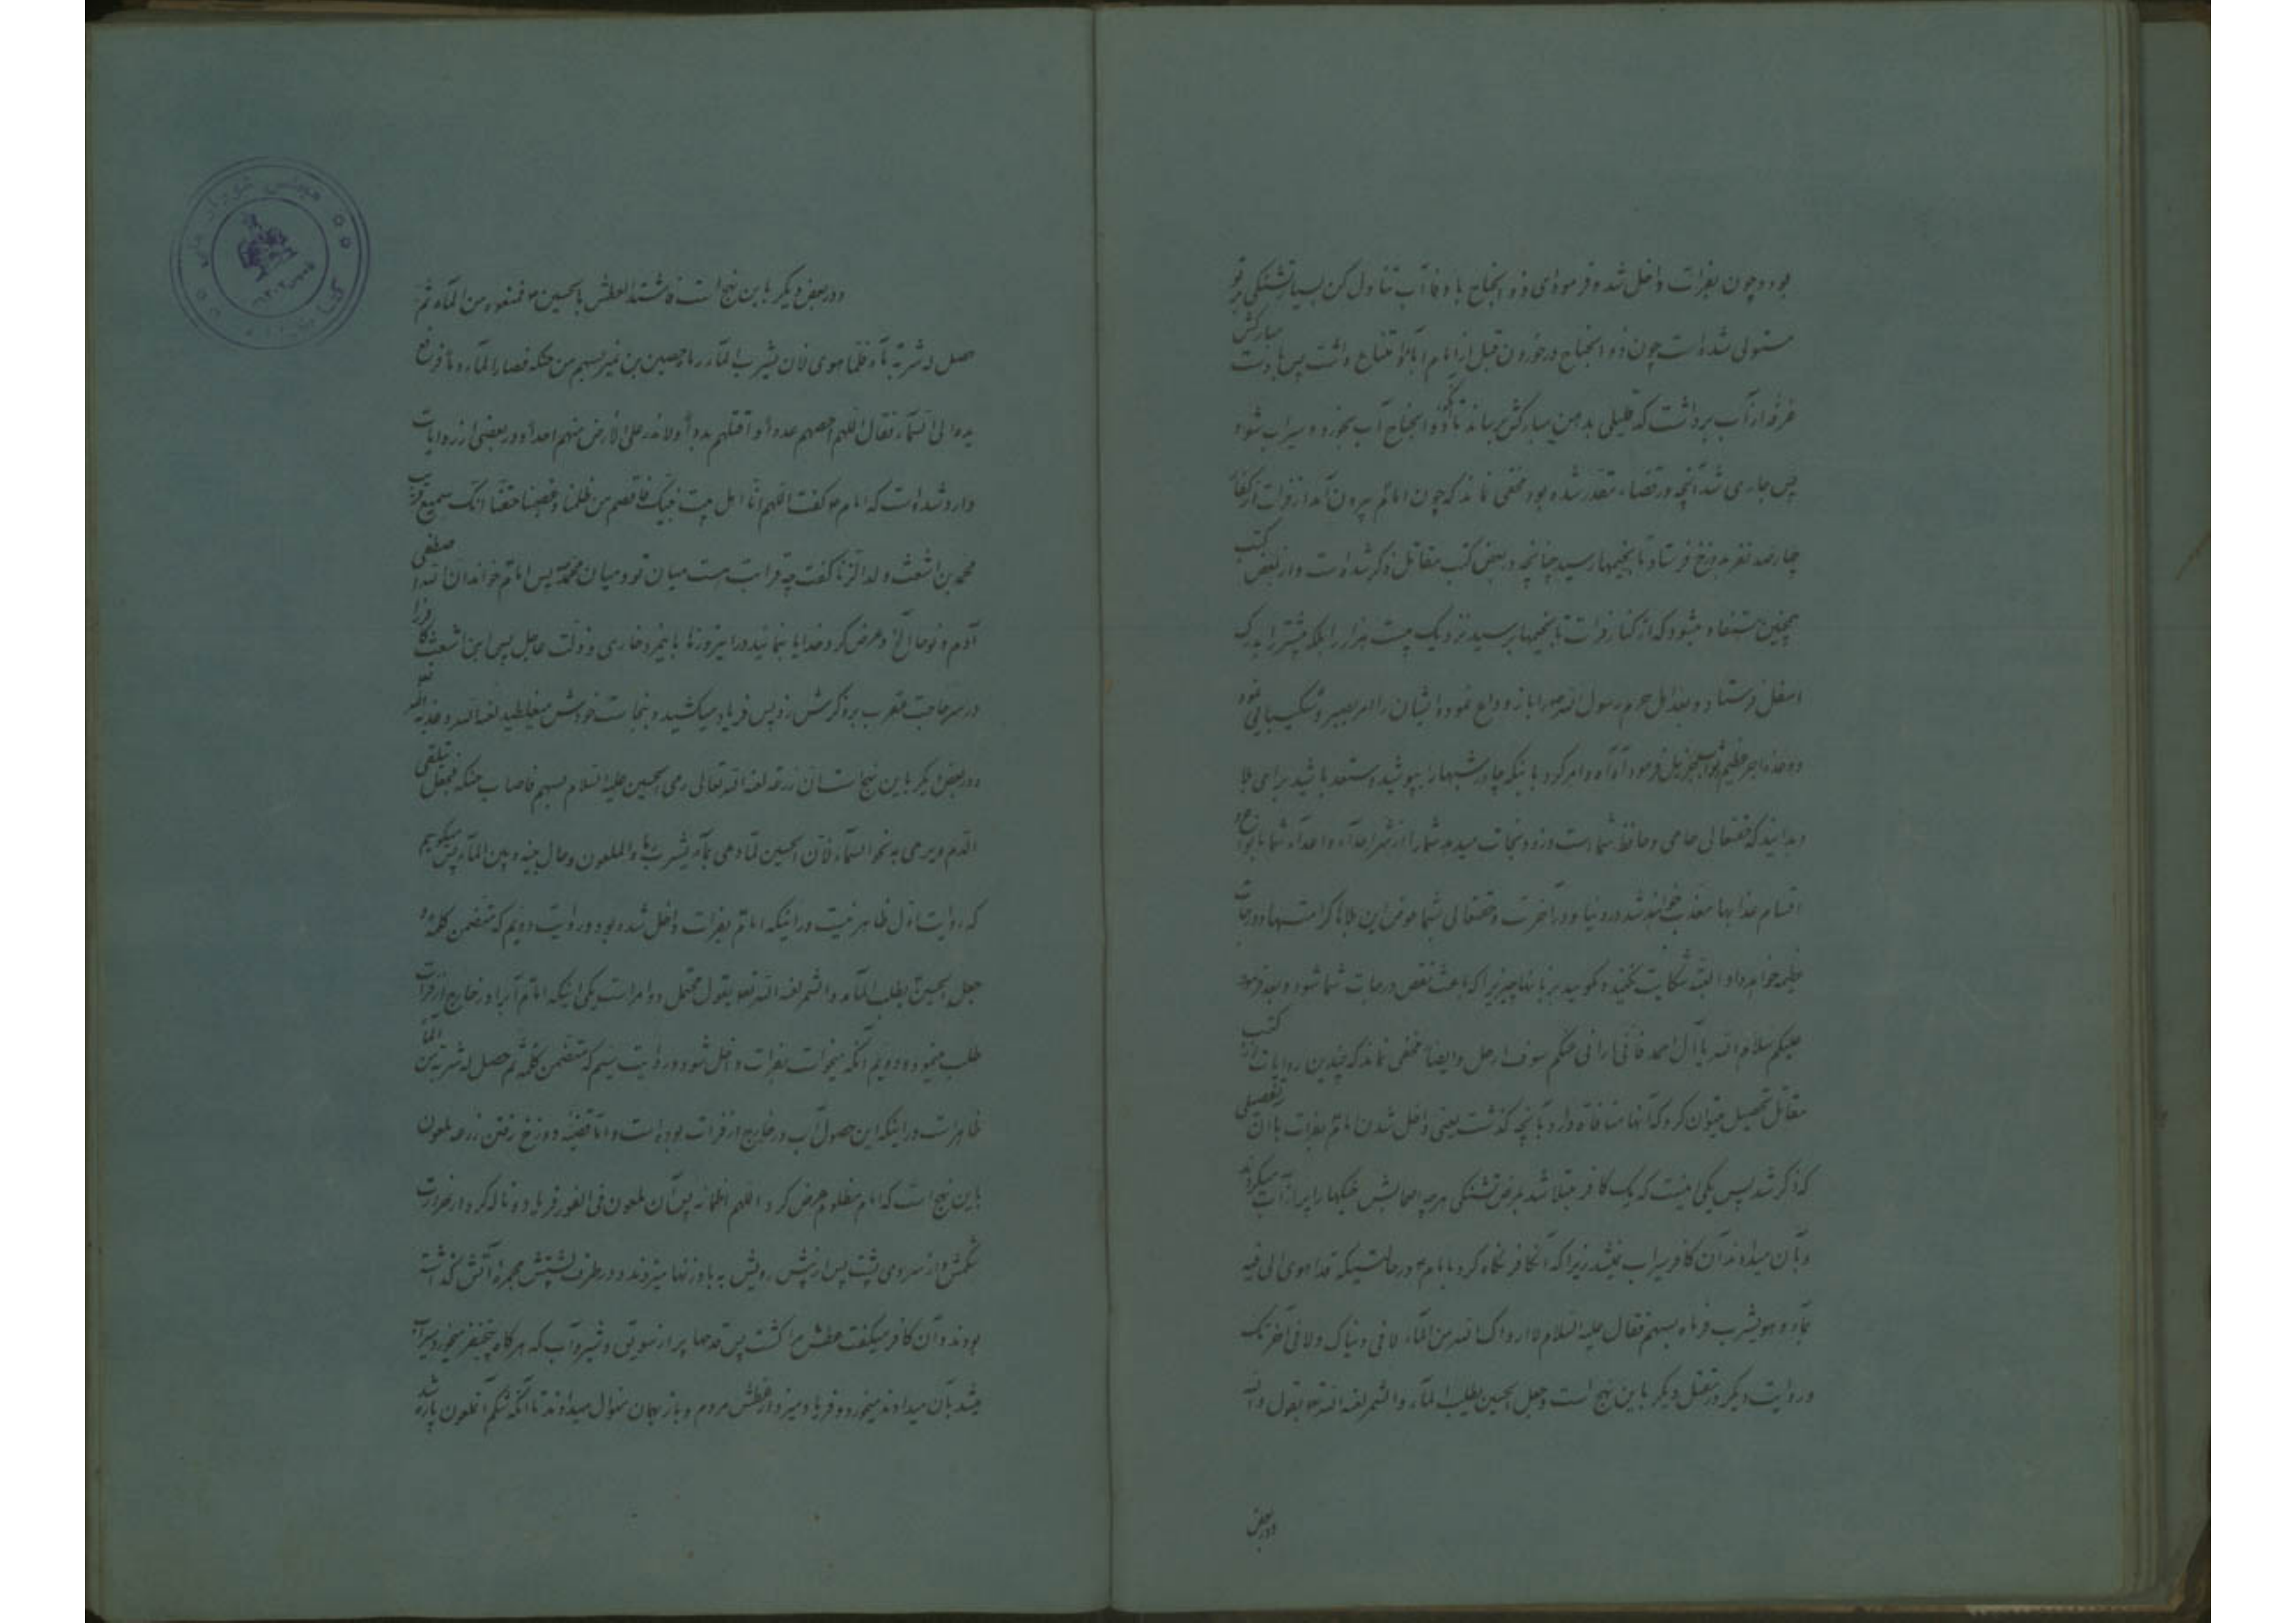 بود و چون بفرات داخل شد و فرمود ای ذو الجناح با وفا آب تناول کن بسیار تشنکی بر تو
مستولی شده است چون ذو الجناح در خوردن قبل از امام ابا و امتناع داشت پس با دست مبارکش
غرفه از آب برداشت که قلیلی بدهن مبارکش برساند تا آنکه ذو الجناح آب بخورد و سیراب شود
پس جاری شد آنچه در قضا مقدر شده بود مخفی نماند که چون امام بیرون آمد از فرات از کفار
چهارصد نفر بدوزخ فرستاد تا بخیمها رسید چنانچه در بعض کتب مقاتل ذکر شده است و از بعض کتب
همچنین مستفاد میشود که از کنار فرات تا بخیمها برسید نزدیک بیست هزار را بلکه بیشتر را بدرک
اسفل فرستاد و بعد اهل حرم رسول الله را باز وداع نمود و ایشان را امر بصبر و شکیبایی نمود
و وعده اجر عظیم و ثواب جزیل فرمود آه آه و امر کرد باینکه چادر شبها را بپوشید و مستعد باشید برای بلا
و بدانید که حقتعالی حامی و حافظ شما است و زود نجات میدهد شما را از شر اعداء و اعداء شما بانواع
اقسام عذابها معذب خواهند شد در دنیا و در آخرت و حقتعالی بشما عوض این بلاها کرامتها و درجات
عظیمه خواهد داد البته شکایت نکنید و مکویید بزبانها چیزیرا که باعث نقص درجات شما شود و بعد فرمود
علیکم سلام الله یا آل احمد فانی ارانی عنکم سوف ارحل و ایضا مخفی نماند که چندین روایات از کتب
مقاتل تحصیل میتوان کرد که آنها منافاة دارد بآنچه کذشت یعنی داخل شدن امام بفرات با آن تفصیلی
که ذکر شد پس یکی اینست که یک کافر مبتلا شد بمرض تشنکی هر چه اصحابش خیکها را پر از آب میکردند
و بآن میدادند آن کافر سیراب نمیشد زیرا که آنکافر نکاه کرد بامام در حالتیکه قد اهوی الی فیه
بماء و هو یشرب فرماه بسهم فقال علیه السلام لا ارواک الله من الماء لا فی دنیاک و لا فی آخرتک
و روایت دیکر در مقتل دیکر باین نهج است و جعل الحسین یطلب الماء و الشمر لعنه الله یقول و الله
و در بعض
و در بعض دیکر باین نهج است فاشتد العطش بالحسین فمنعوه من الماء ثم
حصل له شربة ماء فلما هوی لان یشرب الماء رماه حصین بن نمیر بسهم من حنکه فصار الماء دما فرفع
یده الی السماء فقال اللهم احصهم عددا و اقتلهم بددا و لا تذر علی الارض منهم احدا و در بعضی از روایات
وارد شده است که امام گفت اللهم انا اهل بیت نبیک فاقصم من ظلمنا و غصبنا حقنا انک سمیع قریب
محمد بن اشعث ولد الزنا کفت چه قرابت هست میان تو و میان محمد پس امام خواند ان الله اصطفی
آدم و نوحا الخ و عرض کرد خدایا بنمایید در این روز باینمرد خاری و ذلت عاجل پس ابن اشعث
در سر حاجت عقرب بر ذکرش زد پس فریاد میکشید و بنجاست خودش میغلطید لعنه الله و عذبه
و در بعض دیکر باین نهج است ان زرعه لعنه الله تعالی رمی الحسین علیه السلام بسهم فاصاب حنکه فجعل یتلقی
الدم و یرمی به نحو السماء لان الحسین لما دعی بماء لیشرب رماه الملعون و حال بینه و بین الماء پس میکوییم
که روایت اول ظاهر نیست در اینکه امام بفرات داخل شده بود و روایت دویم که متضمن کلمه و
جعل الحسین یطلب الماء و الشمر لعنه الله یقول محتمل دو امر است یکی اینکه امام آب را در خارج از فرات
طلب مینمود و دویم آنکه میخواست بفرات داخل شود و روایت سیم که متضمن کلمه ثم حصل له شربة من الماء
ظاهر است در اینکه این حصول آب در خارج از فرات بوده است و اما قضیه دوزخ رفتن زرعه ملعون
باین نهج است که امام مظلوم عرض کرد اللهم اظمأه پس آن ملعون فی الفور فریاد و ناله کرد از حرارت
شکمش و از سردی پشت پس از پیش رویش به بادزنها میزدند و در طرف پشتش مجمره آتش کذاشته
بودند و آن کافر میکفت عطش مرا کشت پس قدحها پر از سویق و شیر و آب که هر کاه پنج نفر میخورد سیراب
میشد بآن میدادند میخورد و فریاد میزد از عطش مردم و باز بهمان منوال میدادند تا آنکه شکم آنملعون پاره شد